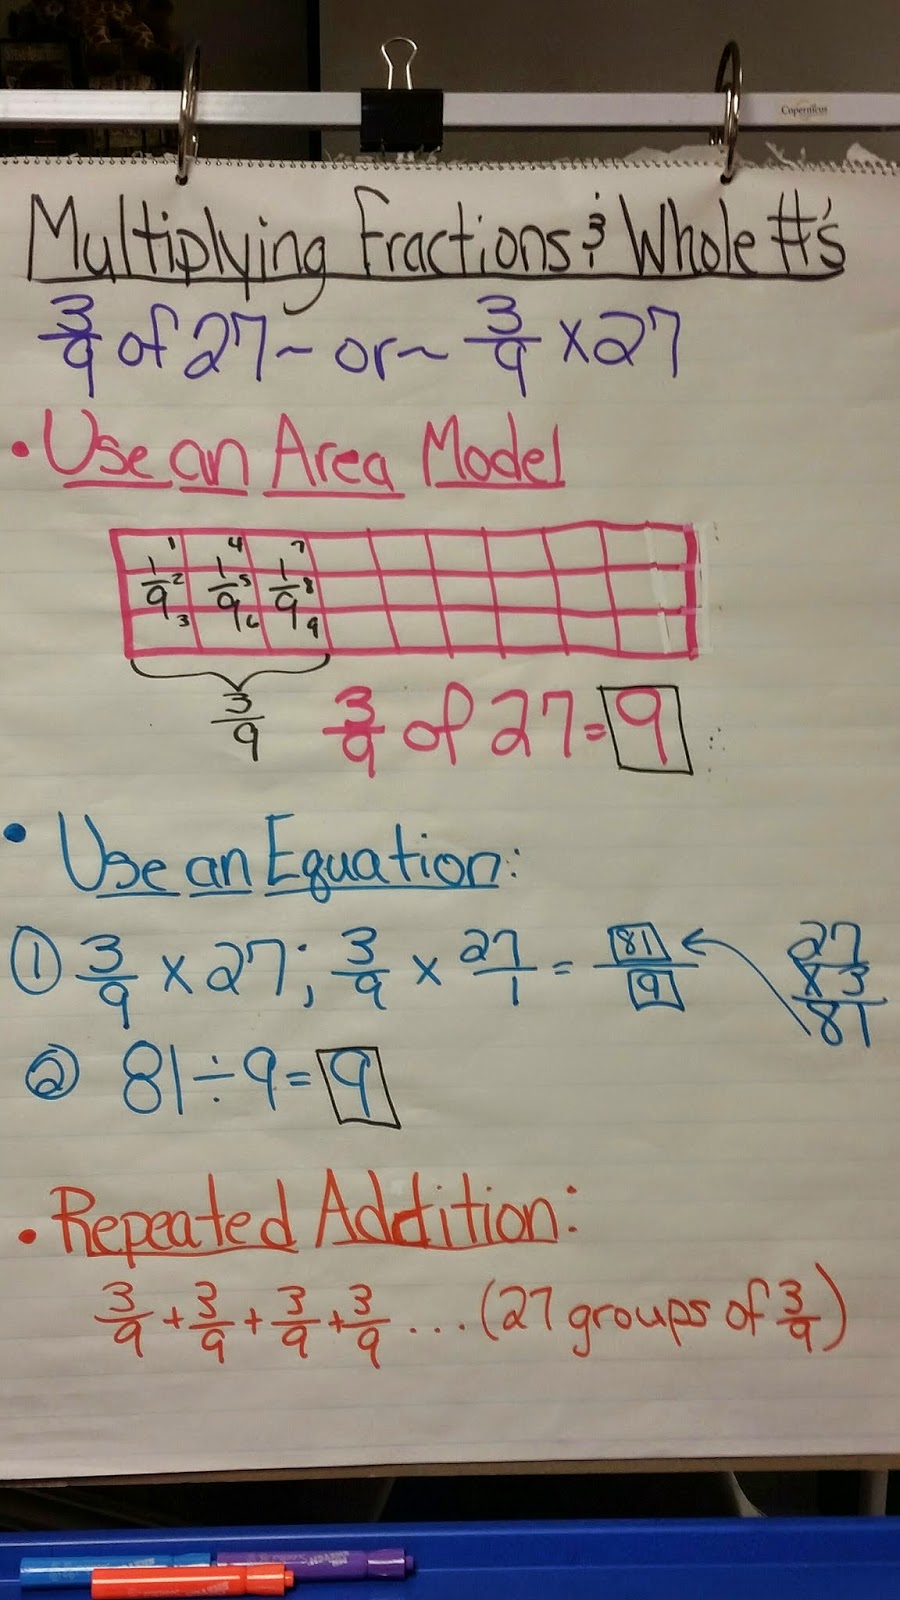 Copernicus
Multiplying Fractions & Whole #'s
3/9 of 27 ~ or ~ 3/9 x 27
• Use an Area Model
1 4 7
1/9 2 1/9 5 1/9 8
3 6 9
3/9 3/9 of 27 = 9
• Use an Equation:
① 3/9 x 27; 3/9 x 27/1 = 81/9
27
x 3
81
② 81 ÷ 9 = 9
• Repeated Addition:
3/9 + 3/9 + 3/9 + 3/9 ... (27 groups of 3/9)